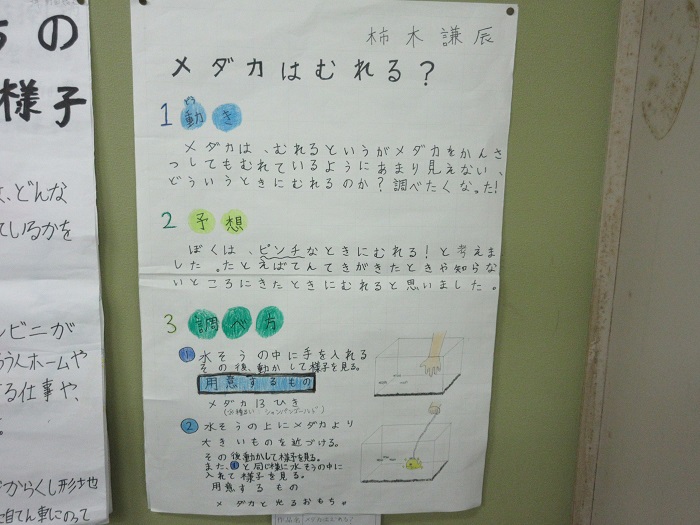 柿木謙辰
メダカはむれる?
1 動き
メダカは、むれるというがメダカをかんさ
つしてもむれているようにあまり見えない、
どういうときにむれるのか?調べたくなった!
2 予想
ぼくは、ピンチなときにむれる!と考えま
した。たとえばてんてきがきたときや知らな
いところにきたときにむれると思いました。
3 調べ方
① 水そうの中に手を入れる
その後、動かして様子を見る。
用意するもの
メダカ13ひき
② 水そうの上にメダカより
大きいものを近づける。
その後動かして様子を見る。
また、①と同じ様に水そうの中に
入れて様子を見る。
用意するもの
メダカと光るおもちゃ。
ちの
様子
、どんな
ているかを
ンビニが
ろう人ホームや
る仕事や、
からくし形地
自てん車にのって
作品名